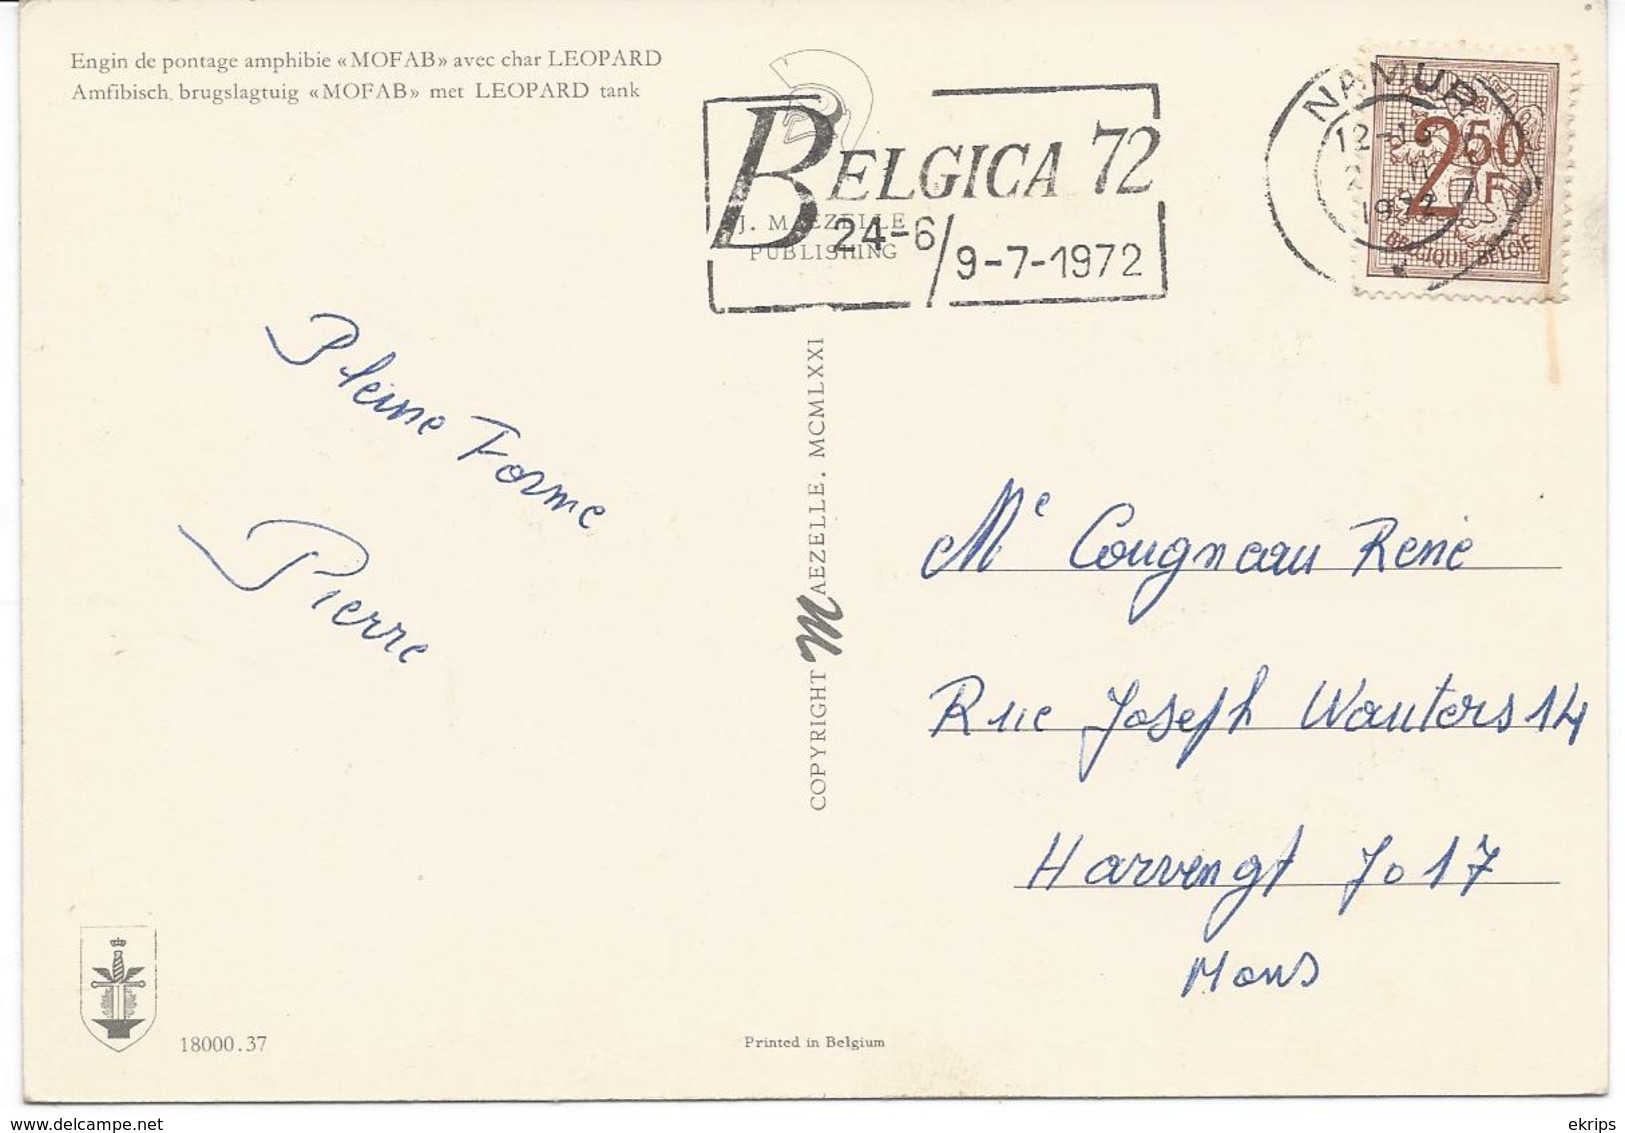 Engin de pontage amphibie «MOFAB» avec char LEOPARD
Amfibisch brugslagtuig «MOFAB» met LEOPARD tank
BELGICA 72
24-6/9-7-1972
J. MAEZELLE
PUBLISHING
NAMUR
12-
1972
2F50
BELGIQUE-BELGIE
Pleine Forme
Pierre
COPYRIGHT MAEZELLE. MCMLXXI
Me Cougneau René
Rue Joseph Wauters 14
Harvengt 7017
Mons
18000.37
Printed in Belgium
delcampe.net
ekrips